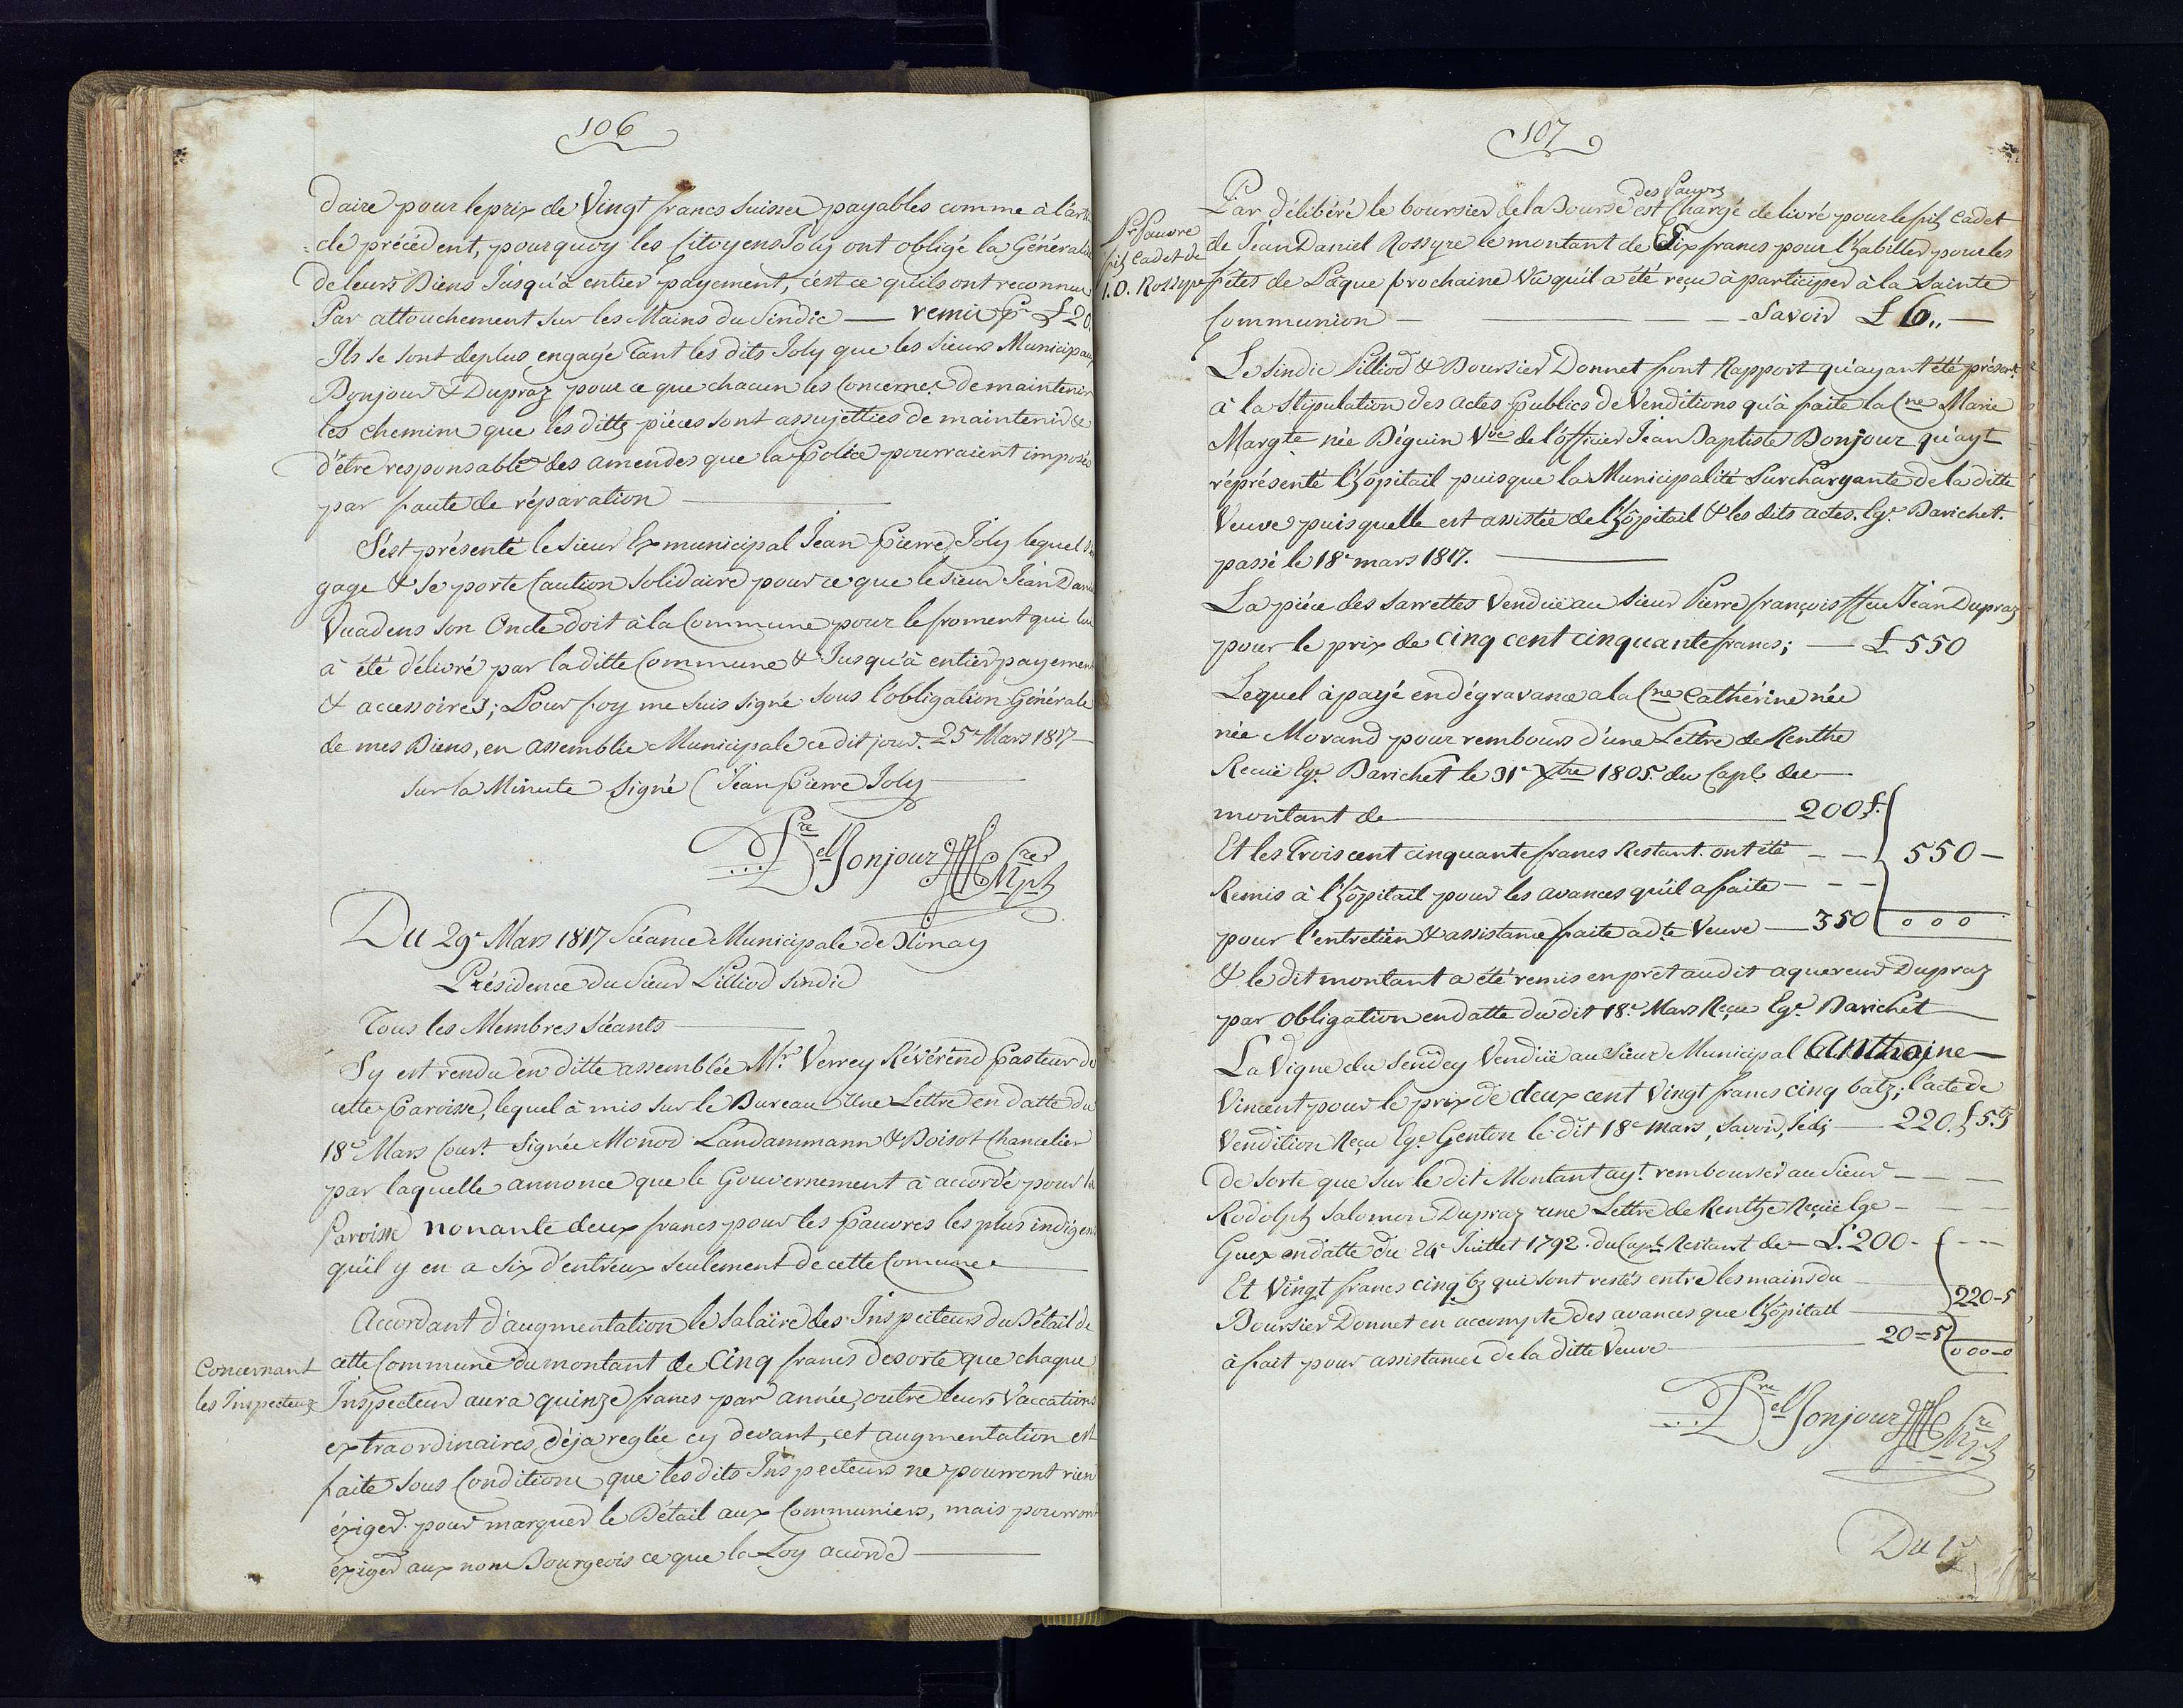 106
daire pour le prix de Vingt francs Suisse payables comme à l'arti
=cle précédent, pourquoy les Citoyens Joly ont obligé la Généralité
de leurs Biens Jusqu'à entier payement, c'ést ce quils ont reconnue
Par attouchement sur les Mains du Sindic — remis pr £ 20.
Ils se sont deplus engagé Tant les dits Joly que les Sieurs Municipaux
Bonjour & Dupraz pour ce que chacun les Concerne: de maintenir
les chemins que les ditts pièces sont assujetties de maintenir &
d'être responsable des amendes que la Police pourraient imposés
par faute de réparation
S'ést présenté le Sieur Exmunicipal Jean Pierre Joly lequel s'en
gage & se porte Caution Solidaire pour ce que le Sieur Jean Daniel
Vuadens son Oncle doit à la Commune pour le froment qui lui
à été délivré par la ditte Commune & Jusqu'à entier payement
& accessoires; Pour foy me suis signé sous l'obligation Générale
de mes Biens, en assemblée Municipale ce dit jour. 25e Mars 1817 —
sur la Minute signé (Jean Pierre Joly
Bonjour
Du 29e Mars 1817 Séance Municipale de Blonay
Présidence du Sieur Pilliod Sindic
Tous les Membres Séants
S'y est rendu en ditte assemblée Mr. Verrey Révérend Pasteur de
cette Paroisse, lequel à mis sur le Bureau Une Lettre en datte du
18e Mars Court. Signée Monod Landammann & Boisot Chancelier
par laquelle annonce que le Gouvernement à accordé pour la
Paroisse nonante deux francs pour les Pauvres les plus indigens
qu'il y en a six d'entreux seulement de cette Comune.
Accordant d'augmentation le Salaire des Inspecteurs du Bétail de
Concernant
les Inspecteurs
cette Commune du montant de Cinq francs de sorte que chaque
Inspecteur aura quinze francs par année, outre leurs Vaccations
extraordinaires déja reglée cy devant, cet augmentation est
faite sous Conditions que les dits Inspecteurs ne pourront rien
éxiger pour marquer le Bétail aux Communiers, mais pourront
éxiger aux nom Bourgeois ce que la Loy accorde
107
Par délibéré le boursier de la Bourse des Pauvrs est Chargé de livré pour le fils cadet
Pr. Pauvre
fils Cadet de
J. D. Rossyre
de Jean Daniel Rossyre le montant de Six francs pour l'habiller pour les
fêtes de Pâque prochaine Vu qu'il a été reçu à participer à la Sainte
Communion — Savoir £ 6.. —
Le Sindic Pilliod & Boursier Donnet font Rapport qu'ayant été présent
à la Stipulation des Actes Publics de Venditions qu'à faite la Cne Marie
Margte née Béguin Vve de l'officier Jean Baptiste Bonjour qu'ayt
réprésenté l'hôpitail puisque la Municipalité Surchargante de la ditte
Veuve puis quelle est assistée de l'hôpitail & les dits actes. Egr. Barichet.
passé le 18e mars 1817.
La piéce des Sarrettes Venduë au Sieur Pierre François ffeu Jean Dupraz
pour le prix de cinq cent cinquante francs; — £ 550
Lequel à payé en dégravance a la Cne Cathérine née
née Morand pour rembours d'une Lettre de Renthe
Recuë Egr. Barichet le 31e Xbre 1805. du Capl. de
montant de 200 f.
Et les Trois cent cinquante francs Restant. ont été — 550 —
Remis à l'hôpitail pour les avances qu'il a faite
pour l'entretien & assistance faite a dte. Veuve — 350 0 0 0
& le dit montant a été remis en prêt au dit aquereur Dupraz
par obligation en datte du dit 18e. Mars Reçue Egr. Barichet
La Vigne du Sendey Venduë au Sieur Municipal Anthoine
Vincent pour le prix de deux cent Vingt francs cinq batz; l'acte de
Vendition Reçu Egr. Genton le dit 18e mars, Savoir, — 220. f 5. bz
de sorte que sur le dit Montant ayt. remboursér au Sieur
Rodolph Salomon Dupraz une Lettre de Renthe Reçuë Egr
Guex en datte du 24e Juillet 1792. du Capl. Restant de — L. 200-
Et Vingt francs cinq bz qui sont restés entre les mains du
220-5
Boursier Donnet en accompte des avances que l'hôpitail
20=5
à fait pour assistance de la ditte Veuve
000-0
Bonjour
Du 1r